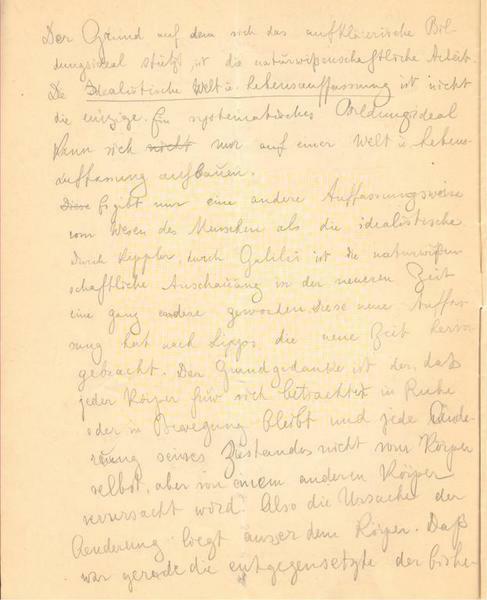 Der Grund auf dem sich das aufklärerische Bil-
dungsideal stützt, ist die naturwissenschaftliche Arbeit.
De Idealistische Welt u. Lebensauffassung ist nicht
die einzige. Ein systematisches Bildungsideal
kann sich nicht nur auf einer Welt u. Lebens-
auffassung aufbauen.
Diese Es gibt nur eine andere Auffassungsweise
vom Wesen des Menschen als die idealistische
Durch Keppler, durch Galilei ist die naturwissen
schaftliche Anschauung in der neueren Zeit
eine ganz andere geworden. Diese neue Auffas-
sung hat nach Lipps die neue Zeit hervor
gebracht. Der Grundgedanke ist der, daß
jeder Körper für sich betrachtet in Ruhe
oder in Bewegung bleibt und jede Ände-
rung seines Zustandes nicht vom Körper
selbst, aber von einem anderen Körper
verursacht wird. Also die Ursache der
Aenderung liegt ausser dem Körper. Daß
war gerade die entgegensetzte der bishe-